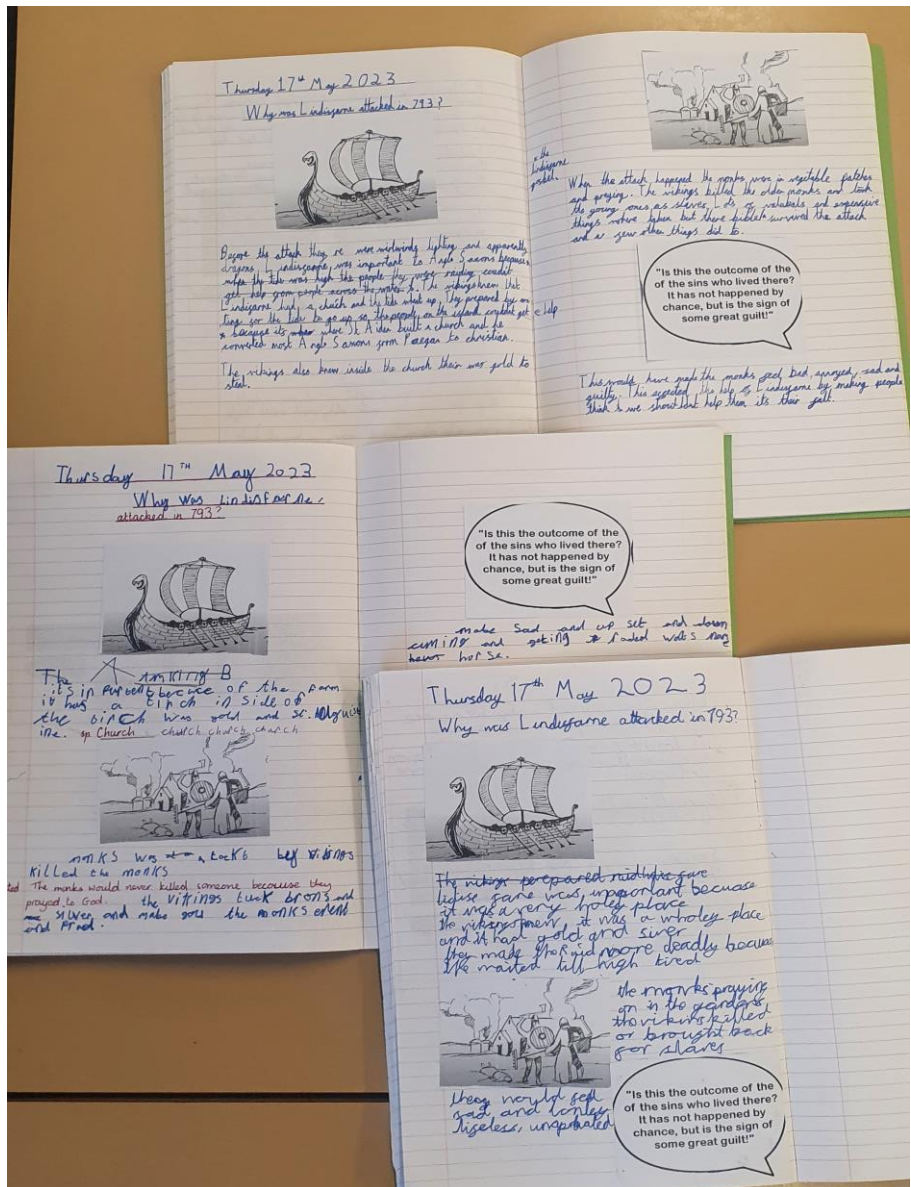 Thursday 17th May 2023
Why was Lindisfarne attacked in 793?
Before the attack there were wirlwinds lighting and apparently
dragons. Lindisfarne was important to Anglo Saxons because
when the tide was high the people they were raiding couldnt
get help from people across the water x. The vikings knew that
Lindisfarne had a church and the tide went up. They prepared by wai
ting for the tide to go up so the people on the island couldnt get help
x because its where St Aiden built a church and he
converted most Anglo Saxons from Paegan to christian.
The vikings also knew inside the church their was gold to
steal.
x the
Lindisfarne
gospel.
When the attack happened the monks were in vegetable patches
and preying. The vikings killed the older monks and took
the young ones as slaves. Lots of valabals and expensive
things were taken but there bible x survived the attack
and a few other things did to.
"Is this the outcome of the
of the sins who lived there?
It has not happened by
chance, but is the sign of
some great guilt!"
This would have made the monks feel bad, annoyed, sad and
guilty. This affected the help of Lindisfarne by making people
think we shouldnt help them its their falt.
Thursday 17TH May 2023
Why was Lindisfarne,
attacked in 793?
The
its in of the farm
it has a circh in side of
the circh was gold and
ine. sp Church church church church
monks was a tacks by vikings
killed the monks
The monks would never killed someone because they
prayed to God. the vikings tuck brons and
silver and make you the monks
and
"Is this the outcome of the
of the sins who lived there?
It has not happened by
chance, but is the sign of
some great guilt!"
make sad and up set and down
cuming and geting
horse.
Thursday 17th May 2023
Why was Lindisfarne attacked in 793?
The vikings prepared
was important because
it was a very holey place
the vikings knew it was a wholey place
and it had gold and siver
they made the raid more deadly because
the waited till high tired
the monks praying
on in the gardens
the vikins killed
or brought back
for slaves
they would feel
sad, and lonley
lifeless,
"Is this the outcome of the
of the sins who lived there?
It has not happened by
chance, but is the sign of
some great guilt!"